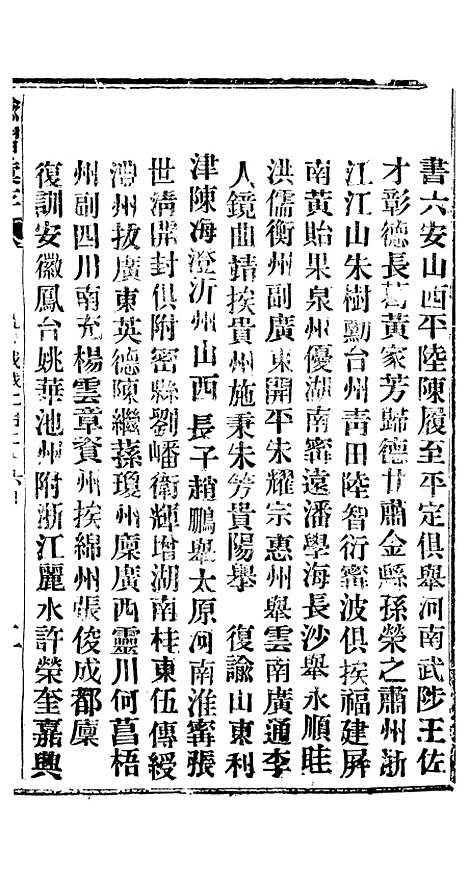 書六安山西平陸陳履至平定俱舉河南武陟王佐
才彰德長葛黃家芳歸德甘肅金縣孫榮之肅州浙
江江山朱樹勳台州青田陸智衍寗波俱挨福建屏
南黃貽果泉州優湖南寗遠潘學海長沙舉永順眭
洪儒衡州副廣東開平朱耀宗惠州舉雲南廣通李
人鏡曲靖挨貴州施秉朱芳貴陽舉　復諭山東利
津陳海澄沂州山西長子趙鵬舉太原河南淮寗張
世清開封俱附密縣劉嶓衛輝增湖南桂東伍傳綬
澧州拔廣東英德陳繼蓀瓊州廩廣西靈川何菖梧
州副四川南充楊雲章資州挨綿州張俊成都廩
復訓安徽鳳台姚華池州附浙江麗水許榮奎嘉興